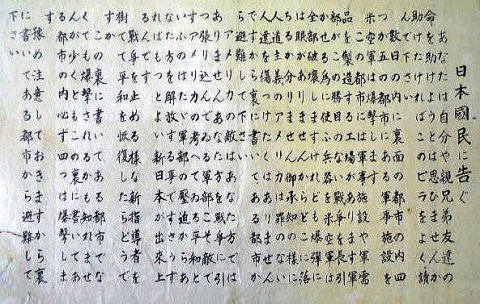 日本國民に告ぐ
あなたは自分や親兄弟友達の
命を助けようとは思ひませんか
助けたければこのビラをよく讀
んで下さい
数日の内に裏面の都市の内四
つか五つの都市にある軍事施設を
米空軍は爆撃します
この都市には軍事施設や軍需
品を製造する工場があります軍
部がこの勝目のない戦争を長引
かせる為に使ふ兵器を米空軍は
全部破壊しますけれども爆弾に
は眼がありませんからどこに落
ちるか分りません御承知の様に
人道主義のアメリカは罪のない
人達を傷つけたくはありません
ですから裏に書いてある都市か
ら避難して下さい
アメリカの敵はあなた方ではあ
りませんあなた方を戦争に引
っ張り込んでゐる軍部こそ敵で
すアメリカの考へてゐる平和と
いふのはたゞ軍部の壓迫からあ
なた方を解放する事ですさうす
ればもつとよい新日本が出來上
るんです
戦争を止める様な新指導者を
樹てて平和を恢復したらどうで
すか
この裏に書いてある都市でな
くても爆撃されるかも知れませ
んが少くともこの裏に書いてあ
る都市の内必ず四つは爆撃しま
す
豫め注意しておきますから裏
に書いてある都市から避難して
下さい